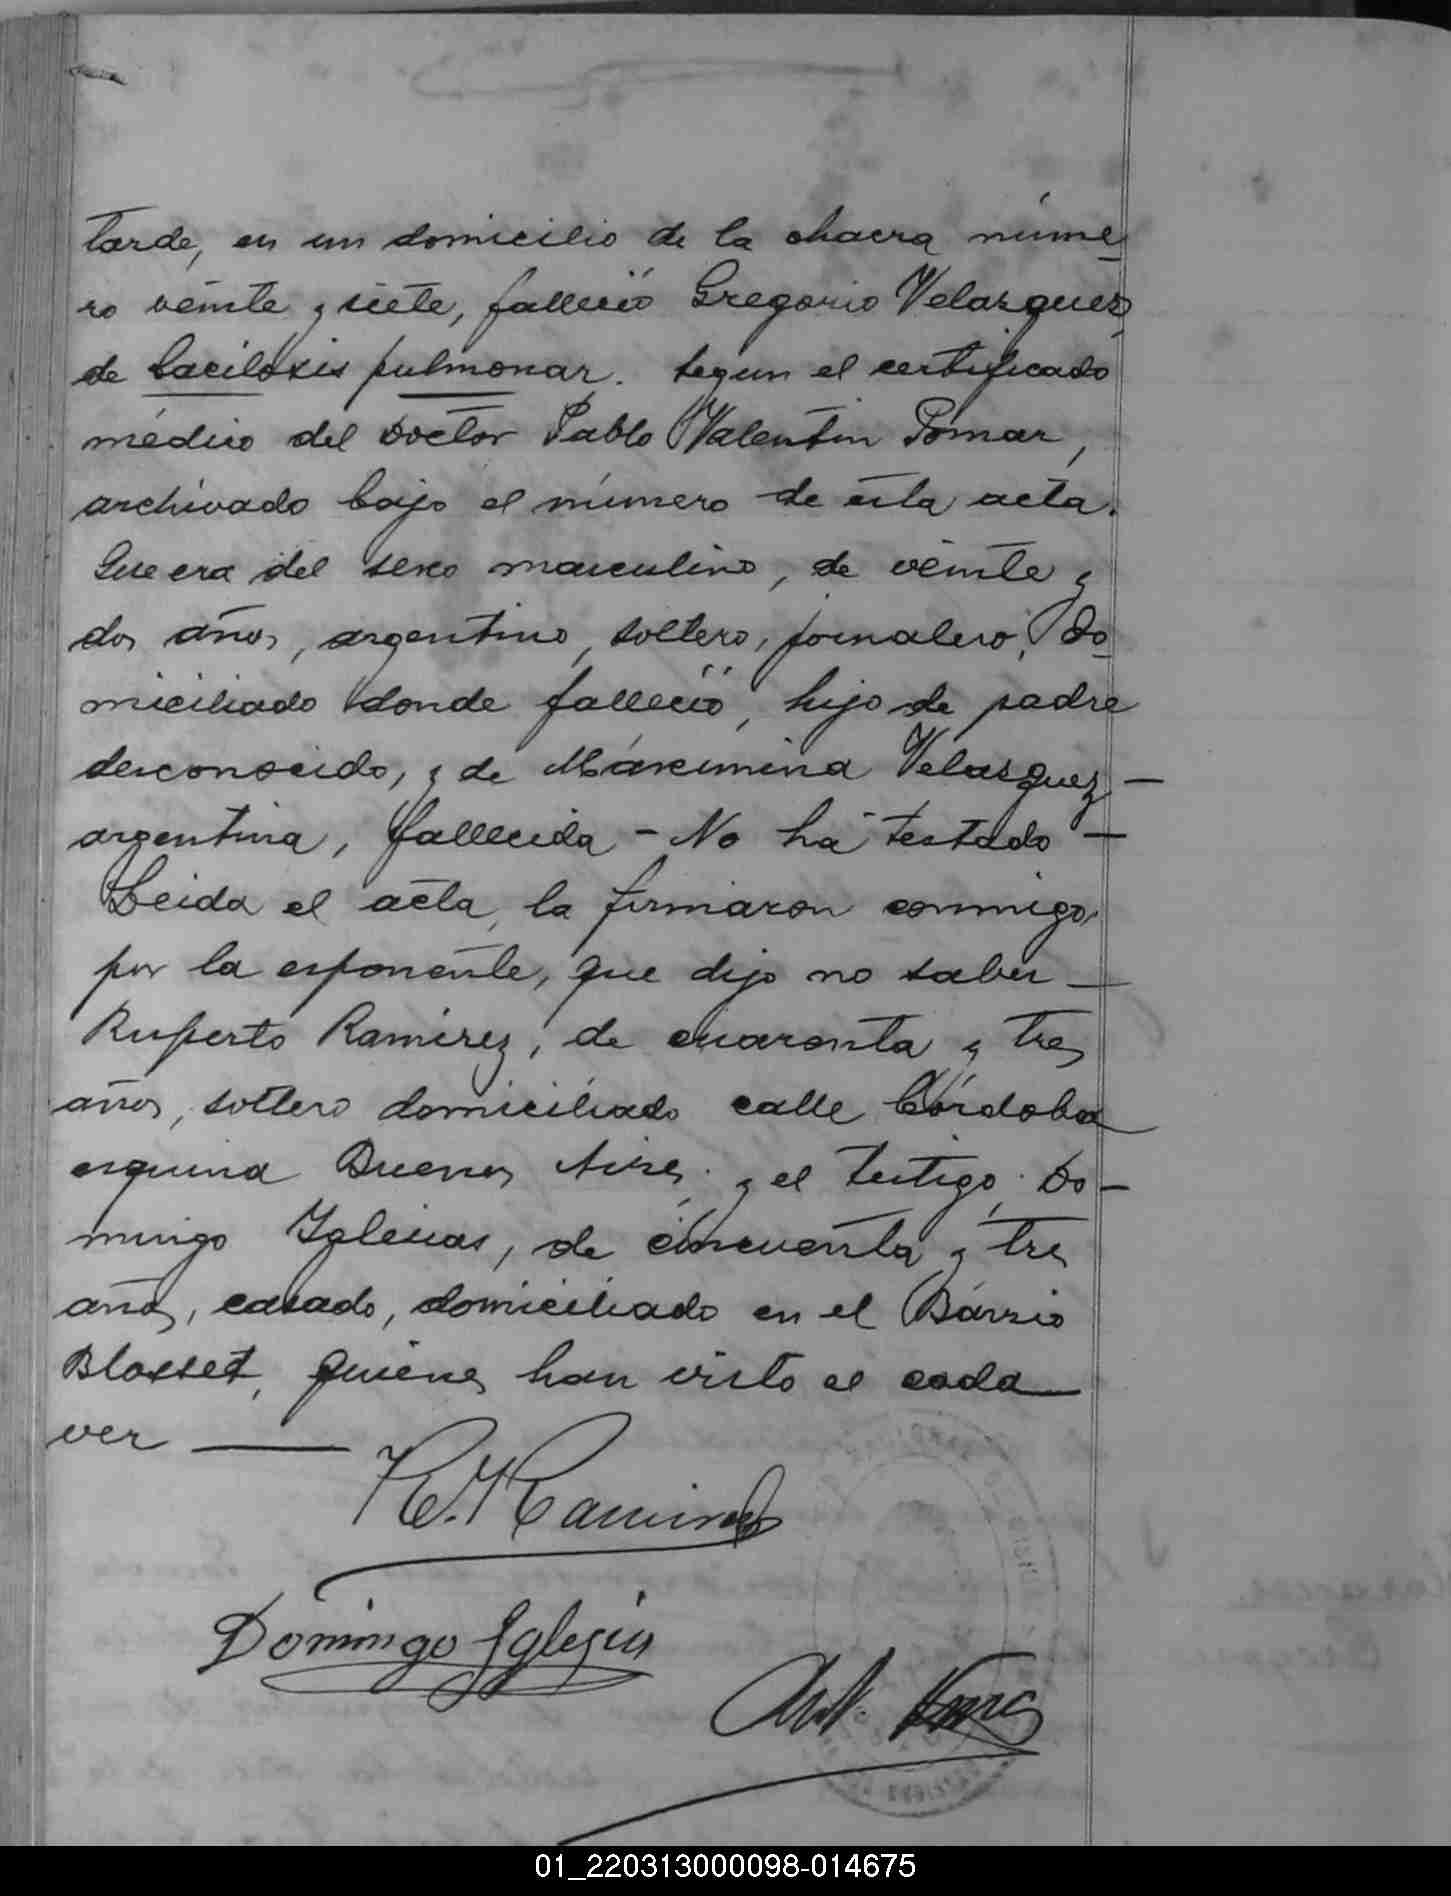 tarde, en un domicilio de la chacra núme-
ro veinte y siete, falleció Gregorio Velazquez,
de bacilosis pulmonar. Segun el certificado
médico del Doctor Pablo Valentin Pomar,
archivado bajo el número de esta acta.
Que era del sexo masculino, de veinte y
dos años, argentino, soltero, jornalero, do-
miciliado donde falleció, hijo de padre
desconocido, y de Máximina Velasquez —
argentina, fallecida - No ha testado —
Leida el acta, la firmaron conmigo,
por la esponente, que dijo no saber —
Ruperto Ramirez, de cuarenta y tres
años, soltero domiciliado calle Córdoba
esquina Buenos Aires, y el testigo, Do-
mingo Iglesias, de cincuenta y tres
años, casado, domiciliado en el Barrio
Blosset, quienes han visto el cada-
ver —
R. Ramirez
Domingo Iglesias
01_220313000098-014675